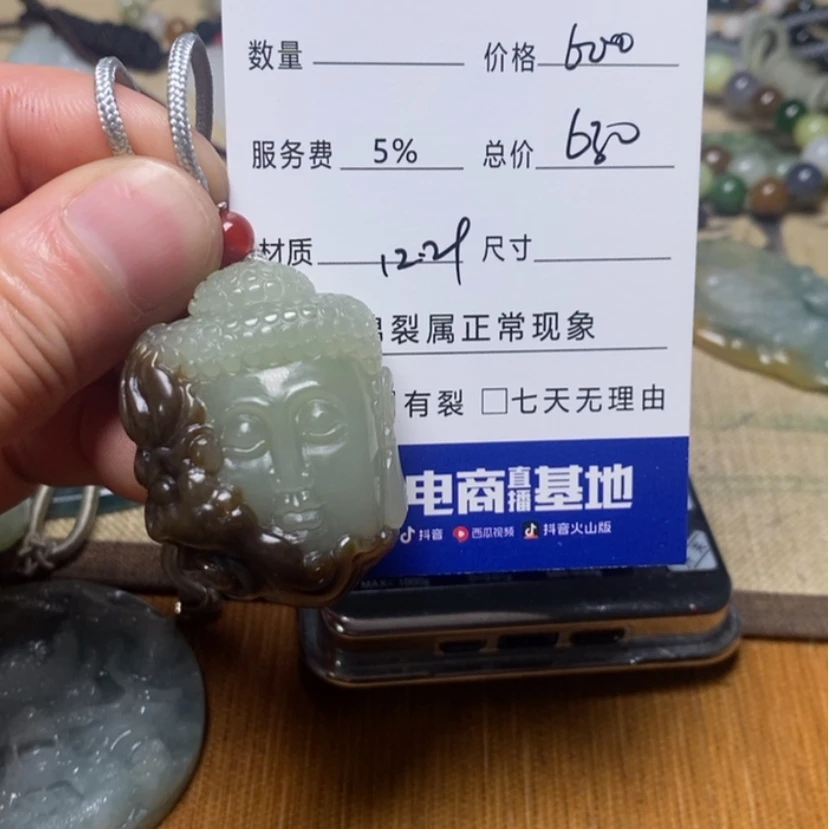 数量 价格 600
服务费 5% 总价 630
材质 12.29 尺寸
裂属正常现象
有裂 □七天无理由
电商直播基地
抖音 西瓜视频 抖音火山版